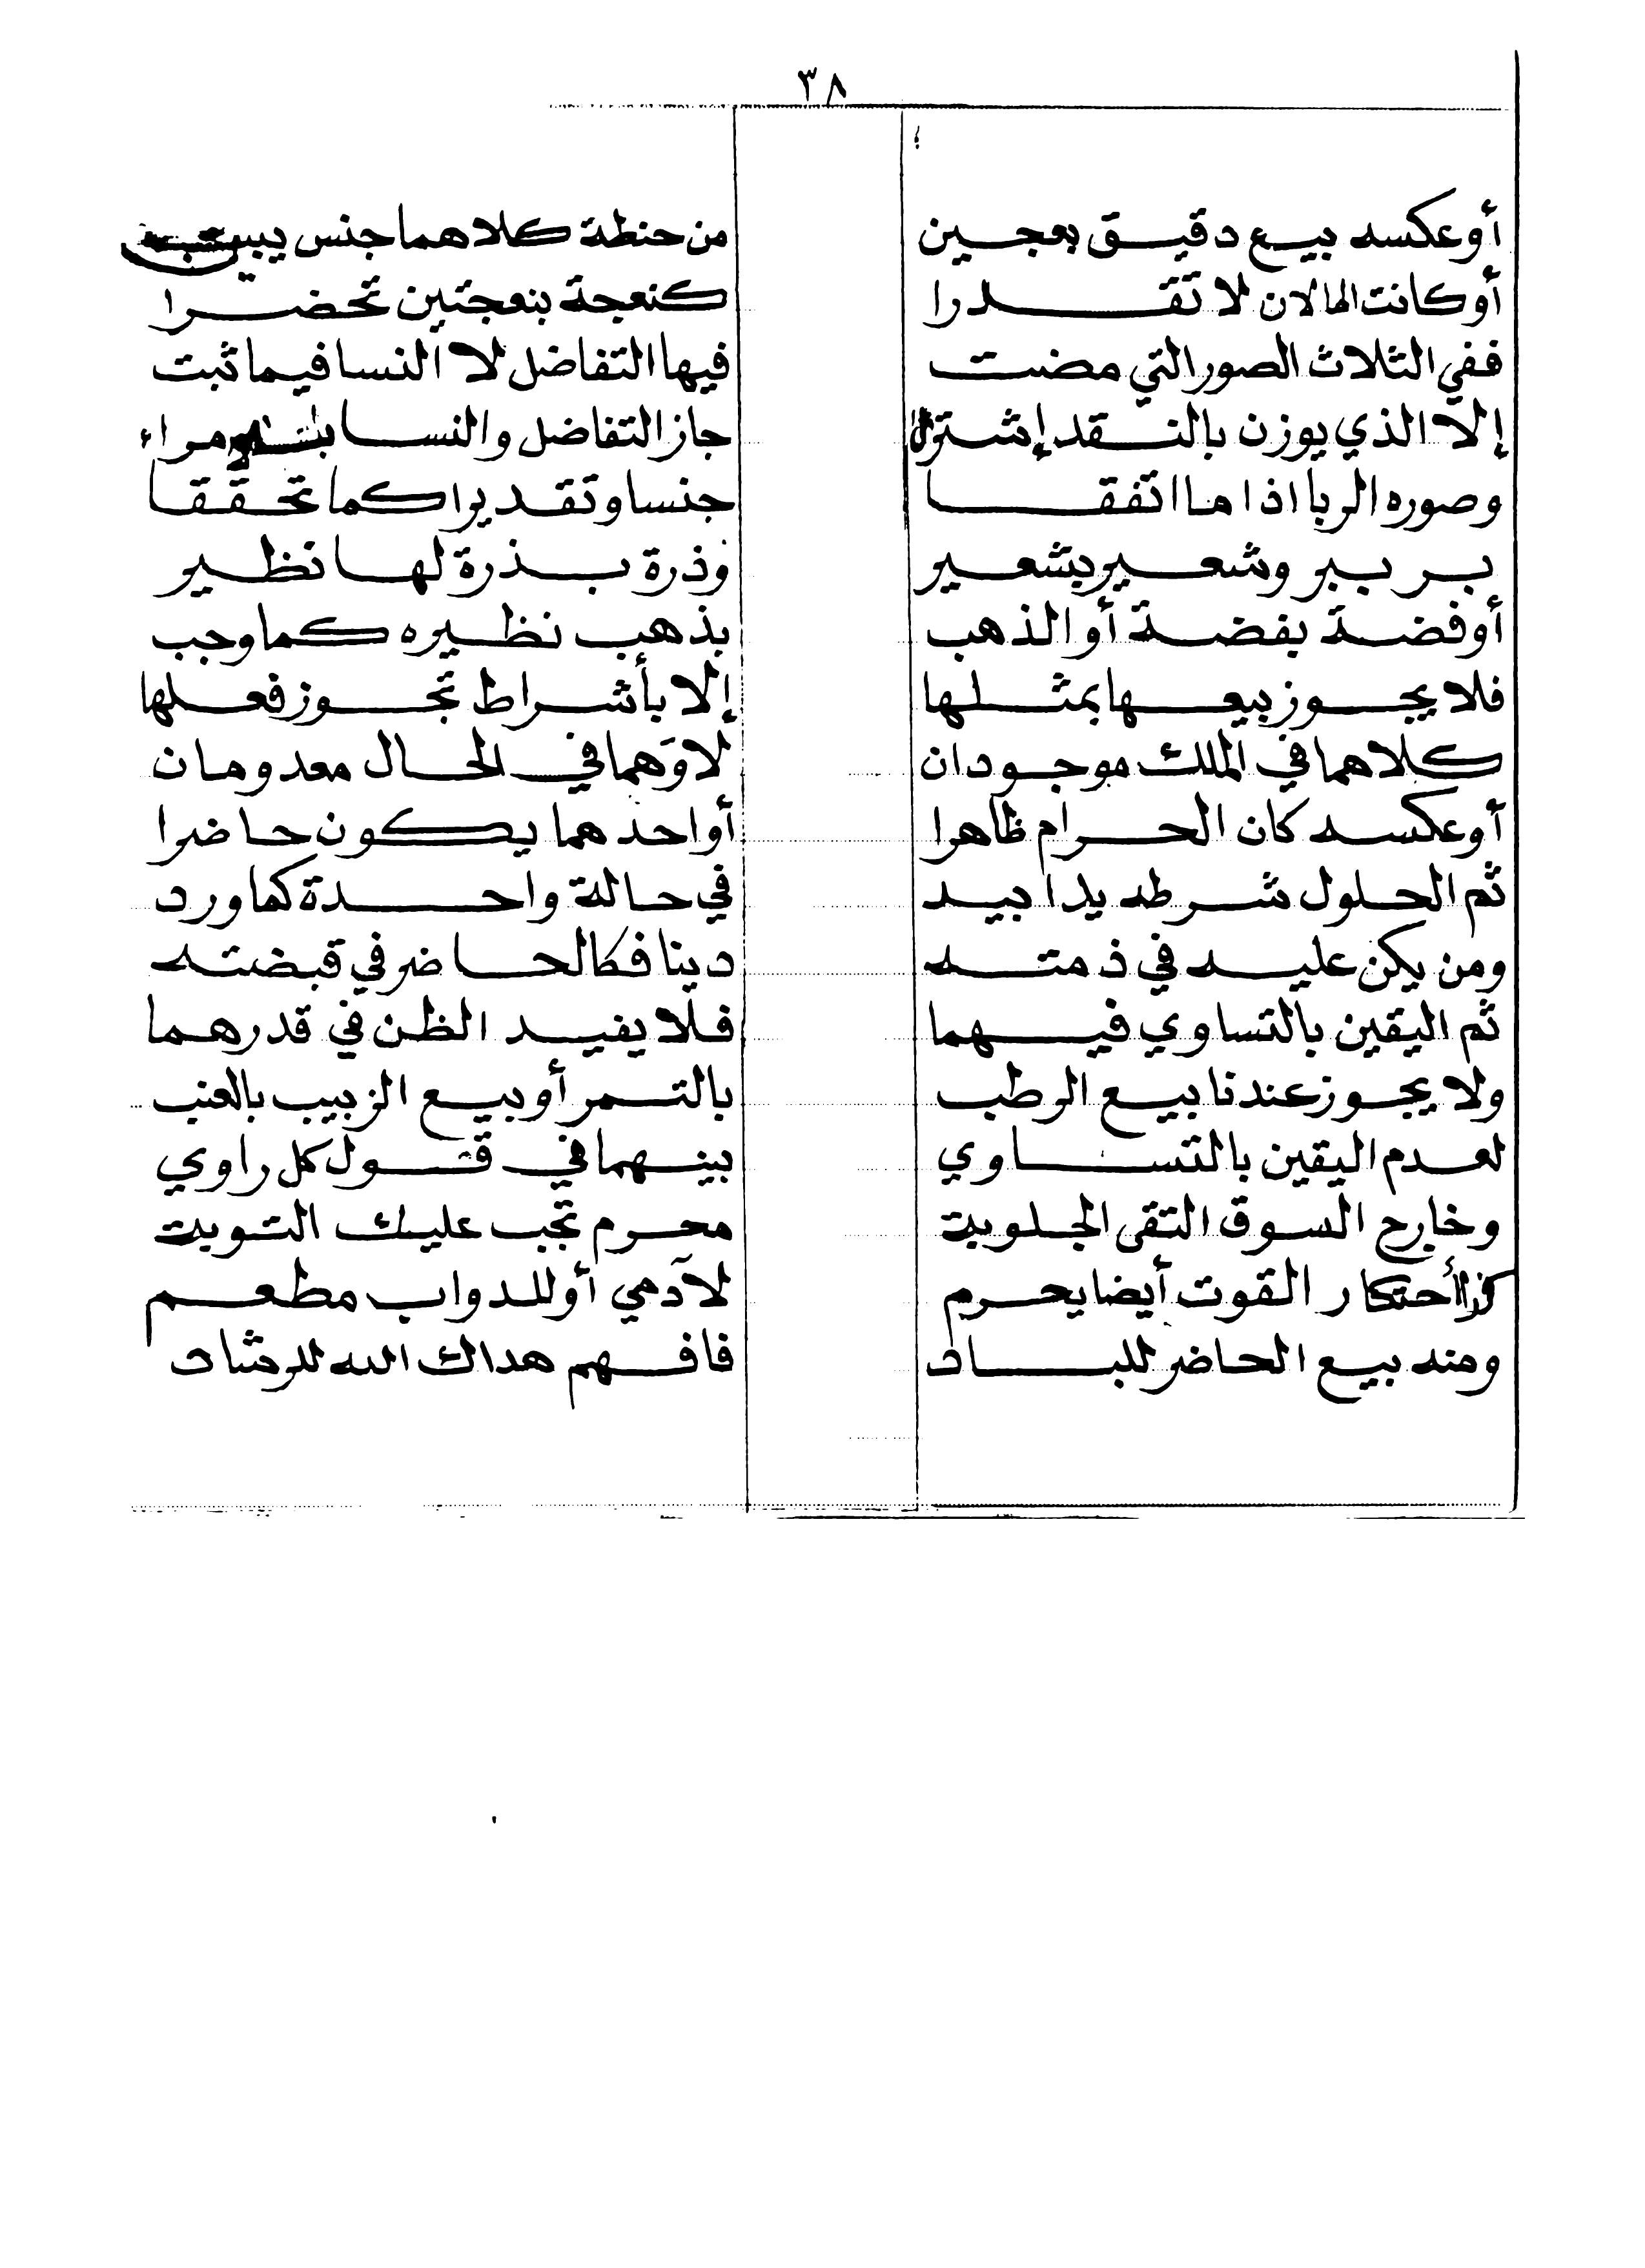 ٣٨
أو عكسه بيع دقيق بعجين من حنطة كلاهما جنس
أو كانت المالان لا تقدرا كنعجة بنعجتين تحضرا
ففي الثلاث الصور التي مضت فيها التفاضل لا النسا فيما ثبت
إلا الذي يوزن بالنقد إشترى جاز التفاضل والنسا مراء
وصوره الربا اذا ما اتفقا جنسا وتقديرا كما تحققا
بر ببر وشعير بشعير وذرة بذرة لها نظير
أو فضة بفضة أو الذهب بذهب نظيره كما وجب
فلا يجوز بيعها بمثلها إلا بأشراط تجوز فعلها
كلاهما في الملك موجودان لا وَهما في الحال معدومان
أو عكسه كان الحرام ظاهرا أو احدهما يكون حاضرا
ثم الحلول شرطه يدا بيد في حالة واحدة كما ورد
ومن يكن عليه في ذمته دينا فكالحاضر في قبضته
ثم اليقين بالتساوي فيهما فلا يفيد الظن في قدرهما
ولا يجوز عندنا بيع الرطب بالتمر أو بيع الزبيب بالعنب
لعدم اليقين بالتساوي بينهما في قول كل راوي
وخارج السوق التقى الجلوبت محرم تجب عليك التوبت
كذا أحتكار القوت أيضا يحرم لآدمي أو للدواب مطعم
ومنه بيع الحاضر للباد فافهم هداك الله للرشاد